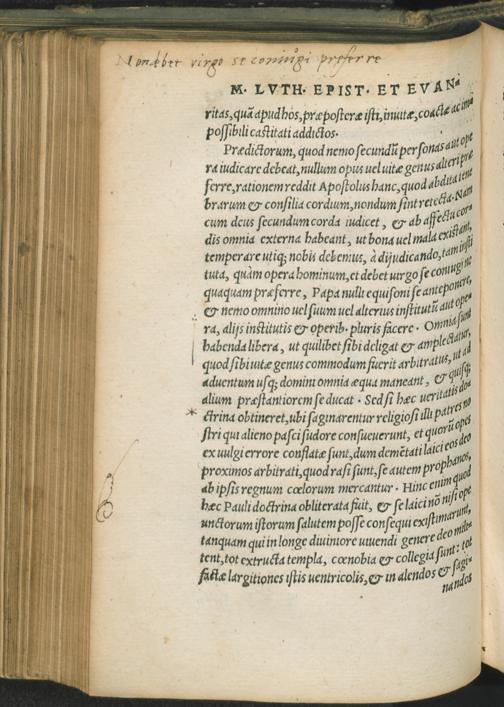 Non debet virgo se coniugi præferre
M. LVTH. EPIST. ET EVAN.
ritas, quã apud hos, præposteræ isti, inuitæ, coactæ ac im
possibili castitati addictos.
Prædictorum, quod nemo secundũ personas aut ope
ra iudicare debeat, nullum opus uel uitæ genus alteri præ
ferre, rationem reddit Apostolus hanc, quod abdita tene
brarum & consilia cordium, nondum sint retecta. Nam
cum deus secundum corda iudicet, & ab affectu cor-
dis omnia externa habeant, ut bona uel mala existant,
temperare utiq; nobis debemus, à dijudicando, tam insti
tuta, quàm opera hominum, et debet uirgo se coniugi ne
quaquam præferre, Papa nulli equisoni se anteponere,
& nemo omnino uel suum uel alterius institutũ aut ope-
ra, alijs institutis & operib. pluris facere. Omnia sunt
habenda libera, ut quilibet sibi deligat & amplectatur,
quod sibi uitæ genus commodum fuerit arbitratus, ut ad
aduentum usq; domini omnia æqua maneant, & quisq;
alium præstantiorem se ducat. Sed si hæc ueritatis do
* ctrina obtineret, ubi saginarentur religiosi illi patres no
stri qui alieno pasci sudore consueuerunt, et quorũ opes
ex uulgi errore conflatæ sunt, dum demẽtati laici eos deo
proximos arbitrati, quod rasi sunt, se autem prophanos,
ab ipsis regnum cœlorum mercantur. Hinc enim quod
hæc Pauli doctrina obliterata fuit, & se laici nõ nisi ope
unctorum istorum salutem posse consequi existimarunt,
tanquam qui in longe diuiniore uiuendi genere deo mili-
tent, tot extructa templa, cœnobia & collegia sunt: tot
factæ largitiones istis uentricolis, & in alendos & sagi-
nandos